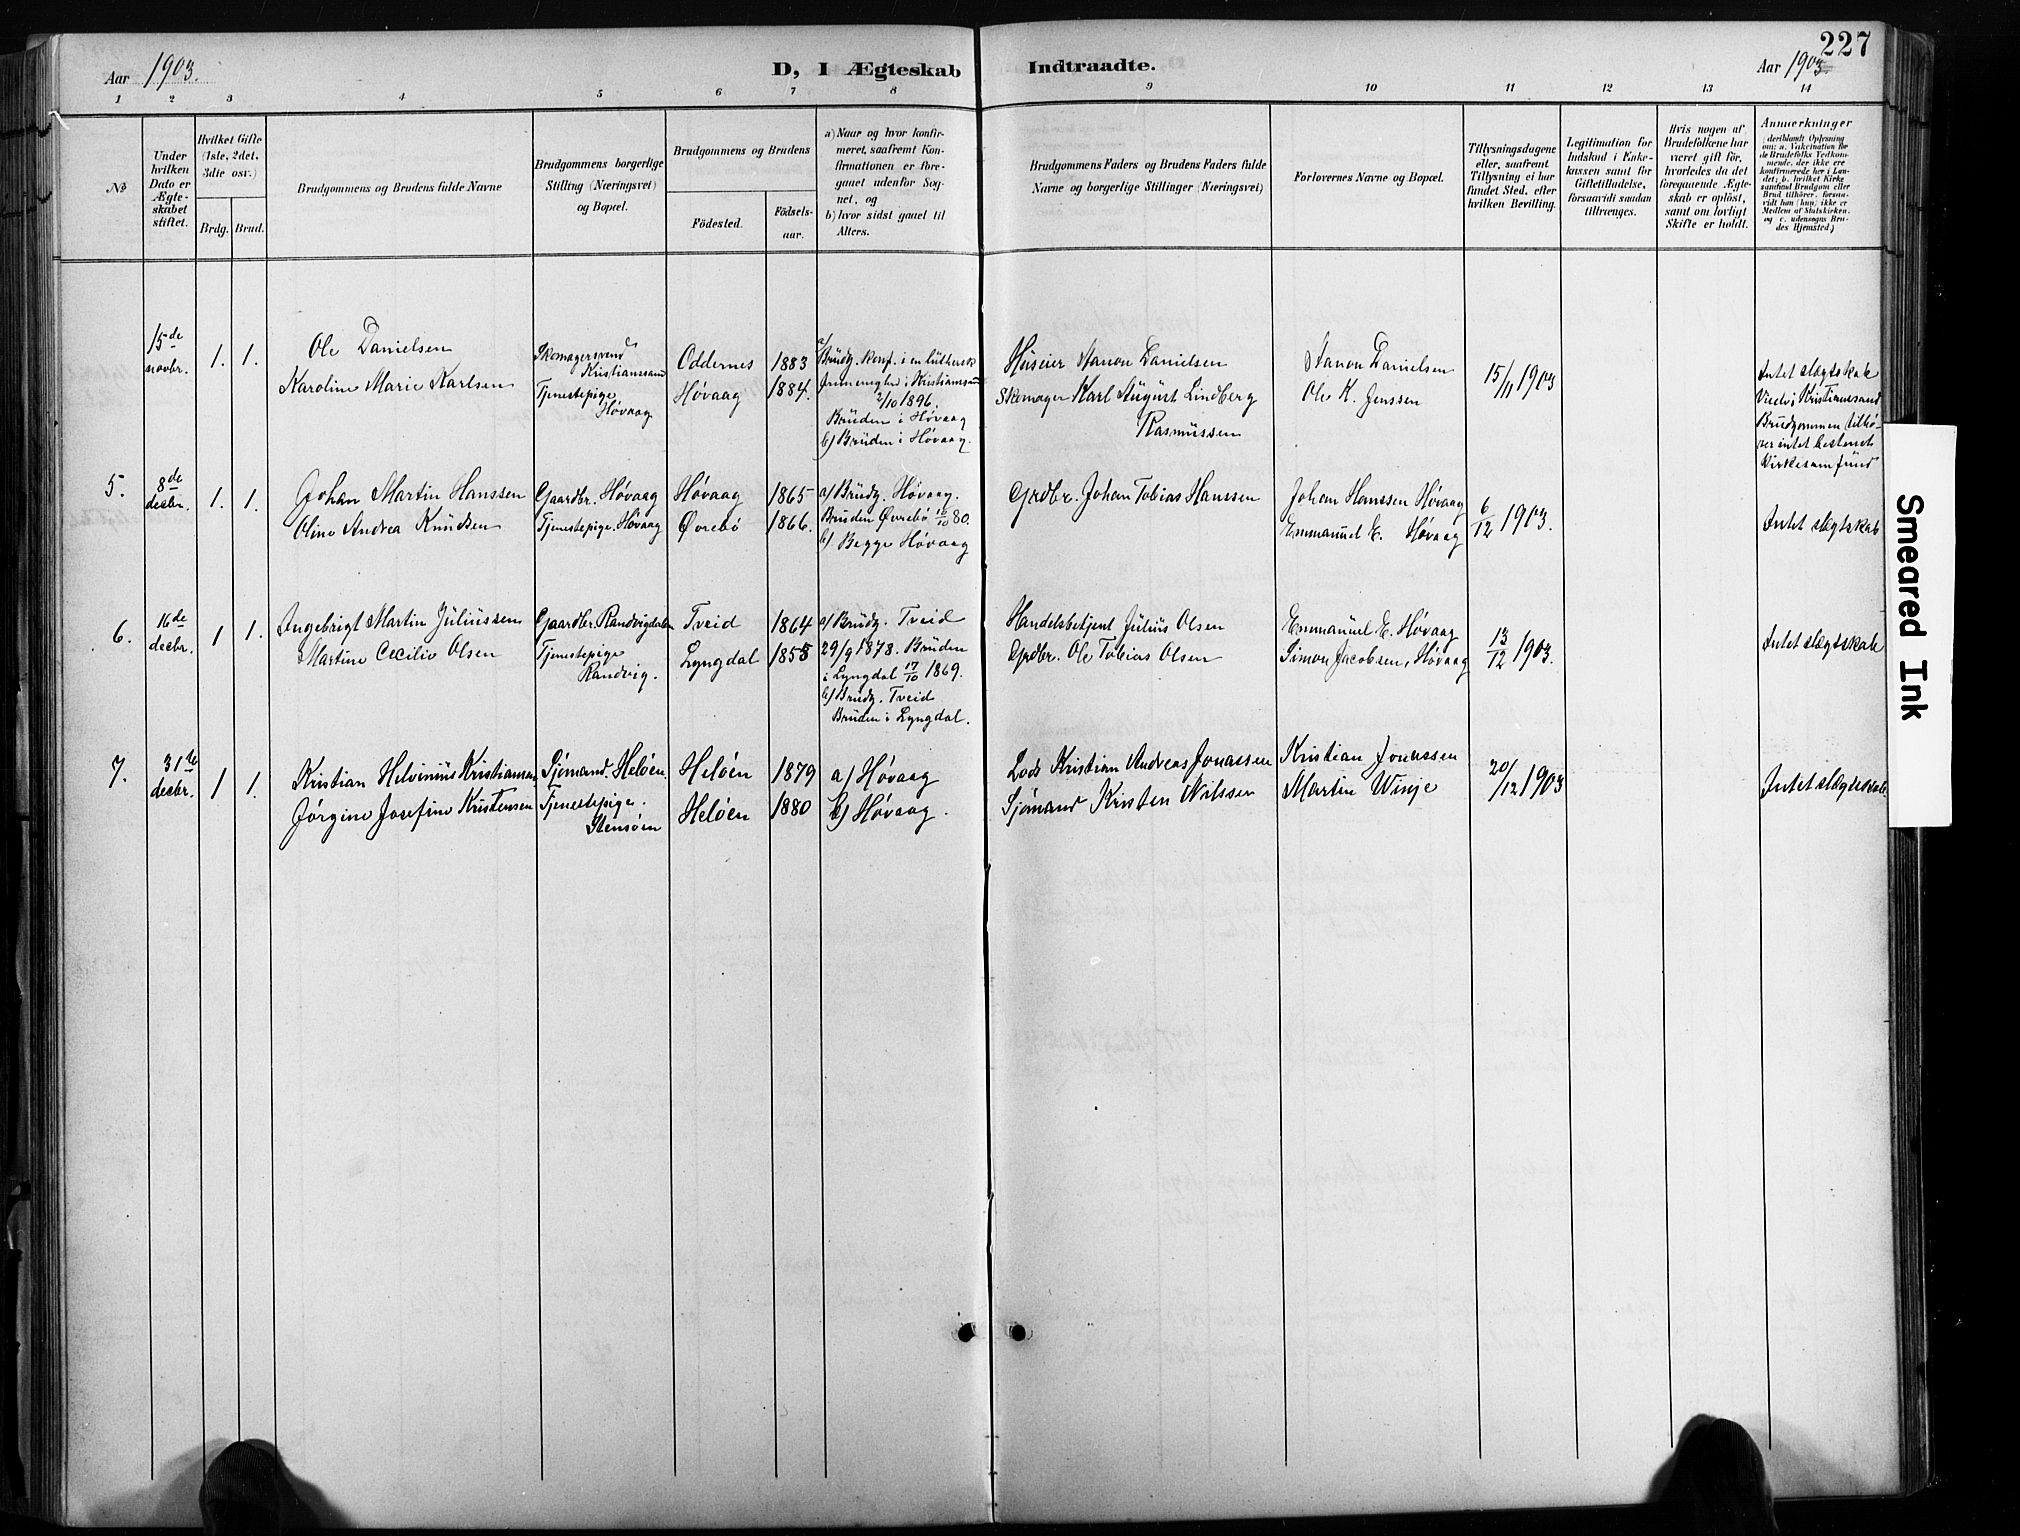 227
Aar 1903.
D, I Ægteskab Indtraadte.
Aar 1903.
1 2 3 4 5 6 7 8 9 10 11 12 13 14
No
Under hvilken Dato er Ægteskabet stiftet.
Hvilket Gifte (1ste, 2det, 3die osv.)
Brdg. Brud.
Brudgommens og Brudens fulde Navne
Brudgommens borgerlige Stilling (Næringsvei) og Bopæl.
Brudgommens og Brudens
Födested.
Födselsaar.
a) Naar og hvor konfirmeret, saafremt Konfirmationen er foregaaet udenfor Sognet, og
b) hvor sidst gaaet til Alters.
Brudgommens Faders og Brudens Faders fulde Navne og borgerlige Stillinger (Næringsvei)
Forlovernes Navne og Bopæl.
Tillysningsdagene eller, saafremt Tillysning ei har fundet Sted, efter hvilken Bevilling.
Legitimation for Indskud i Enkekassen samt for Giftetilladelse, forsaavidt saadan tiltrænges.
Hvis nogen af Brudefolkene har været gift før, hvorledes da det foregaaende Ægteskab er oplöst, samt om lovligt Skifte er holdt.
Anmerkninger
(deriblandt Oplysning om: a. Vakcination for de Brudefolks Vedkommende, der ikke ere konfirmerede her i Landet; b. hvilket Kirkesamfund Brudgom eller Brud tilhører, forsaavidt han (hun) ikke er Medlem af Statskirken, og c. udensogns Brudes Hjemsted.)
15de novbr. 1. 1.
Ole Danielsen
Karoline Marie Karlsen
Skomagersvend Kristianssand
Tjenestepige Høvaag
Oddernes 1883
Høvaag 1884.
a) Brudg. konf. i en luthersk
frimenighed i Kristianssand
2/10 1896.
Bruden i Høvaag
b) Bruden i Høvaag.
Huseier Danielsen
Skomager Karl August Lindberg
Rasmussen
Danielsen
Ole K. Jenssen
15/11 1903
Intet slægtskab
Viede i Kristianssand
Brudgommen tilhører intet bestemt
Kirkesamfund
5. 8de decbr. 1. 1.
Johan Martin Hanssen
Oline Andrea Knudsen
Gaardbr. Høvaag
Tjenestepige. Høvaag
Høvaag 1865
Øvrebø 1866.
a) Brudg. Høvaag.
Bruden Øvrebø 80.
b) Begge Høvaag
Grdbr. Johan Tobias Hanssen
Johan Hanssen Høvaag
Emmanuel E. Høvaag
6/12 1903.
Intet slægtskab
6. 16de decbr. 1 1.
Ingebrigt Martin Juliussen
Martine Cecilie Olsen
Gaardbr. Randvigdalen
Tjenestepige Randvig.
Tveid 1864
Lyngdal 1855
a) Brudg. Tveid
29/9 1878. Bruden
i Lyngdal 17/10 1869.
b) Brudg. Tveid
Bruden i Lyngdal.
Handelsbetjent Julius Olsen
Grdbr. Ole Tobias Olsen
Emmanuel E. Høvaag
Simon Jacobsen, Høvaag
13/12 1903.
Intet slægtskab
7. 31te decbr. 1 1.
Kristian Helvinius Kristiansen
Jörgine Josefine Kristensen
Sjömand. Helöen.
Tjenestepige. Stensöen
Helöen 1879
Helöen 1880
a) Høvaag
b) Høvaag.
Lods Kristian Andreas Jonassen
Sjömand Kristen Nilssen
Kristian Jonassen
Martin Winje
20/12 1903
Intet slægtskab.
Smeared Ink